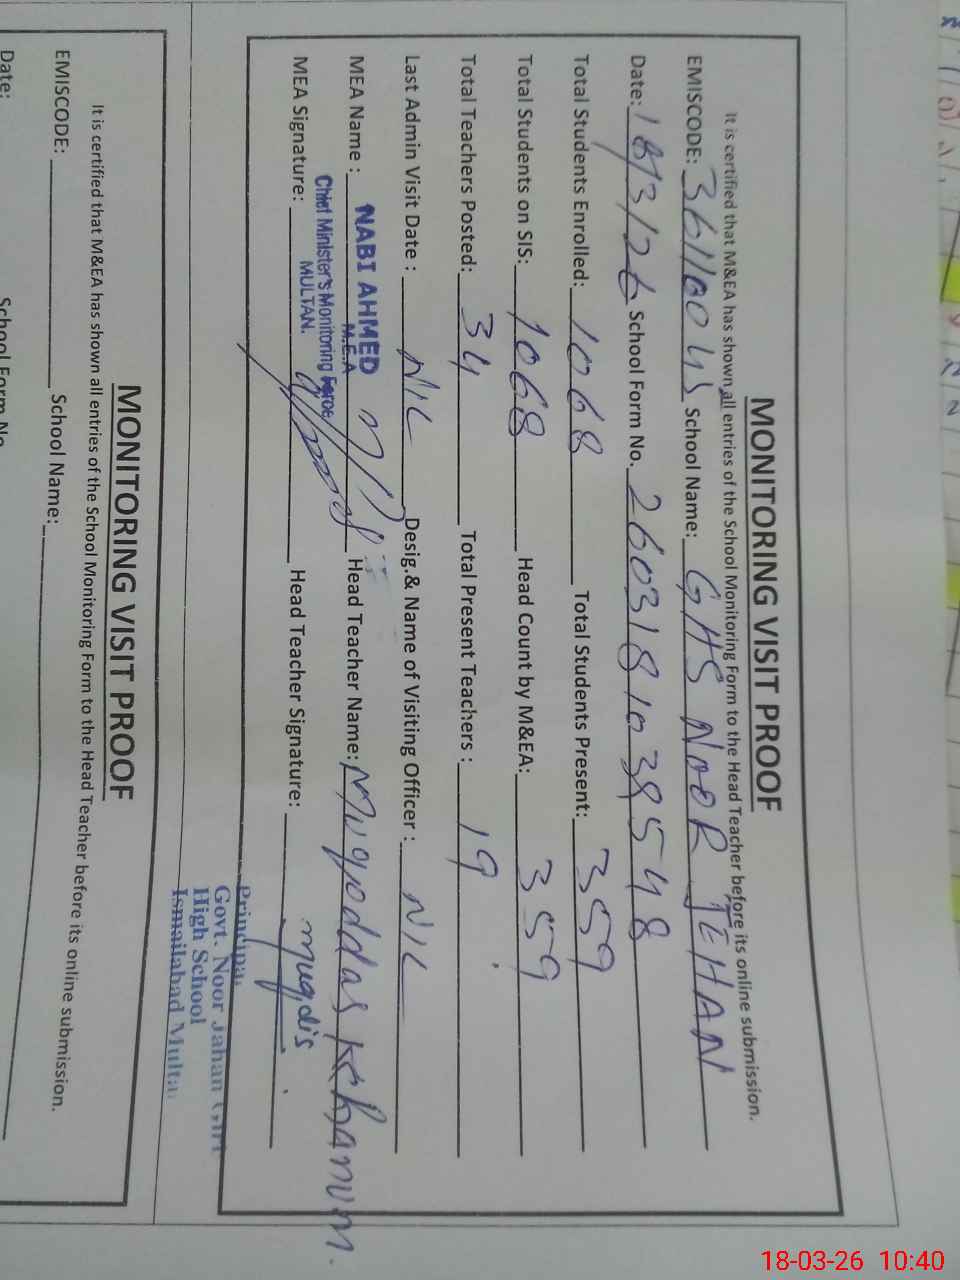 MONITORING VISIT PROOF
It is certified that M&EA has shown all entries of the School Monitoring Form to the Head Teacher before its online submission.
EMISCODE: 36110045 School Name: GHS NOOR JEHAN
Date: 18/3/26 School Form No. 2603181038548
Total Students Enrolled: 1068 Total Students Present: 359
Total Students on SIS: 1068 Head Count by M&EA: 359
Total Teachers Posted: 34 Total Present Teachers : 19
Last Admin Visit Date : NIL Desig.& Name of Visiting Officer : NIL
MEA Name : NABI AHMED Head Teacher Name: Muqoddas Khanum.
M.E.A
Chief Minister's Monitoring Force
MULTAN.
MEA Signature: Head Teacher Signature: muqdis
Principal
Govt. Noor Jahan Girl
High School
Ismailabad Multan
MONITORING VISIT PROOF
It is certified that M&EA has shown all entries of the School Monitoring Form to the Head Teacher before its online submission.
EMISCODE: School Name:
Date: School Form No.
18-03-26 10:40